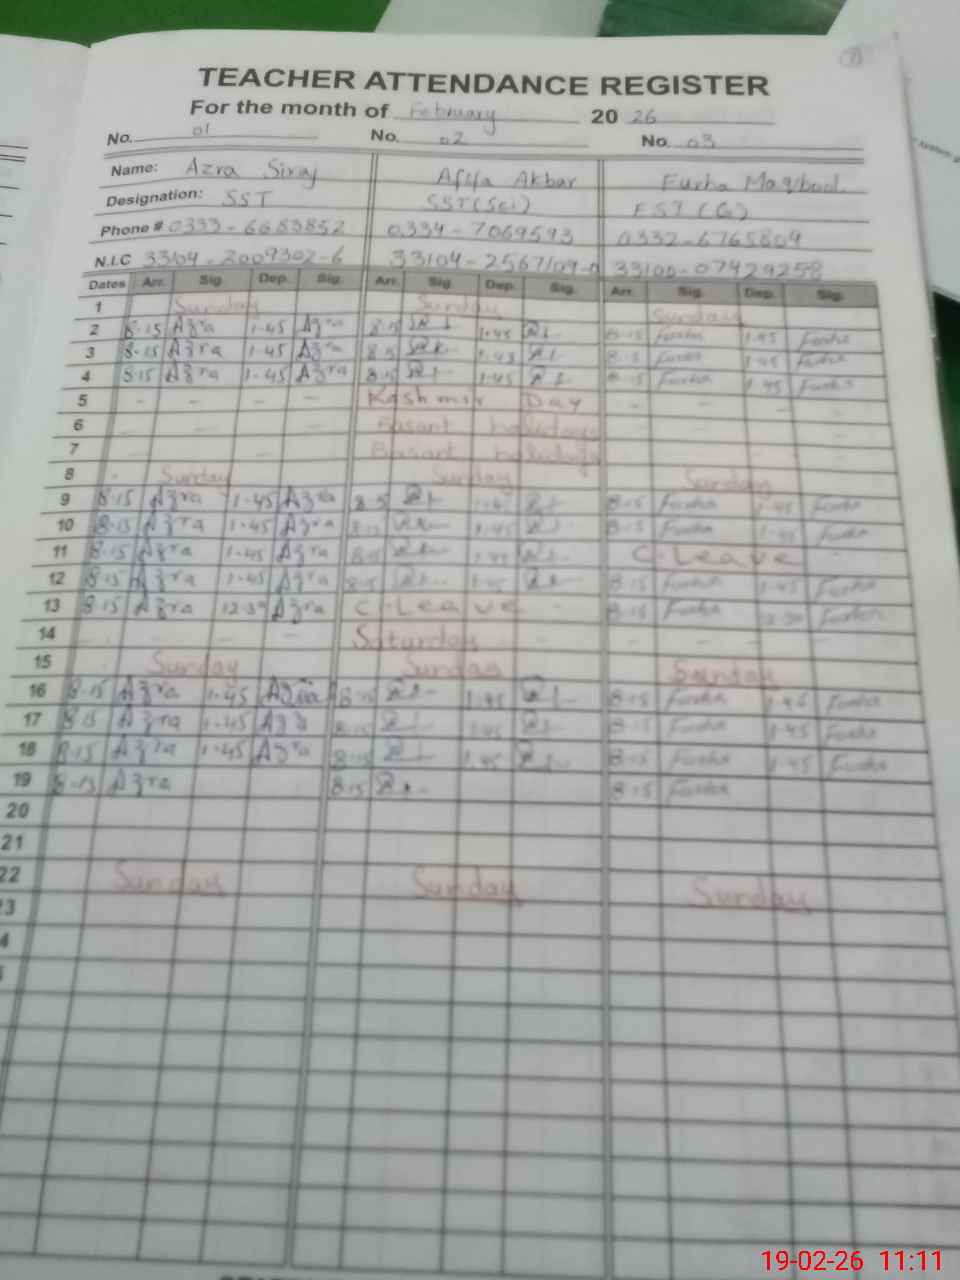 TEACHER ATTENDANCE REGISTER
For the month of February 20 26
No. 01 No. 02 No. 03
Name: Azra Siraj Afifa Akbar Farha Maqbool
Designation: SST SST(Sci) EST (G)
Phone # 0333-6683852 0334-7069593 0332-6765804
N.I.C 33104-2009302-6 33104-2567109- 33100-07429258
Dates Arr. Sig. Dep. Sig. Arr. Sig. Dep. Sig. Arr. Sig. Dep. Sig.
1 Sunday Sunday Sunday
2 8.15 Azra 1.45 Azra 8.15 1.45 8.15 Farha 1.45 Farha
3 8.15 Azra 1.45 Azra 8.15 1.45 8.15 Farha 1.45 Farha
4 8.15 Azra 1.45 Azra 8.15 1.45 8.15 Farha 1.45 Farha
5 - - - - Kashmir Day - - - -
6 - - - - Basant holidays - - - -
7 - - - - Basant holidays - - - -
8 Sunday Sunday Sunday
9 8.15 Azra 1.45 Azra 8.15 1.45 8.15 Farha 1.45 Farha
10 8.15 Azra 1.45 Azra 8.15 1.45 8.15 Farha 1.45 Farha
11 8.15 Azra 1.45 Azra 8.15 1.45 C.Leave -
12 8.15 Azra 1.45 Azra 8.15 1.45 8.15 Farha 1.45 Farha
13 8.15 Azra 12.30 Azra C.Leave - 8.15 Farha 12.30 Farha
14 - - - - Saturday - - - - - -
15 Sunday Sunday Sunday
16 8.15 Azra 1.45 Azra 8.15 1.45 8.15 Farha 1.45 Farha
17 8.15 Azra 1.45 Azra 8.15 1.45 8.15 Farha 1.45 Farha
18 8.15 Azra 1.45 Azra 8.15 1.45 8.15 Farha 1.45 Farha
19 8.15 Azra 8.15 8.15 Farha
20
21
22 Sunday Sunday Sunday
23
19-02-26 11:11